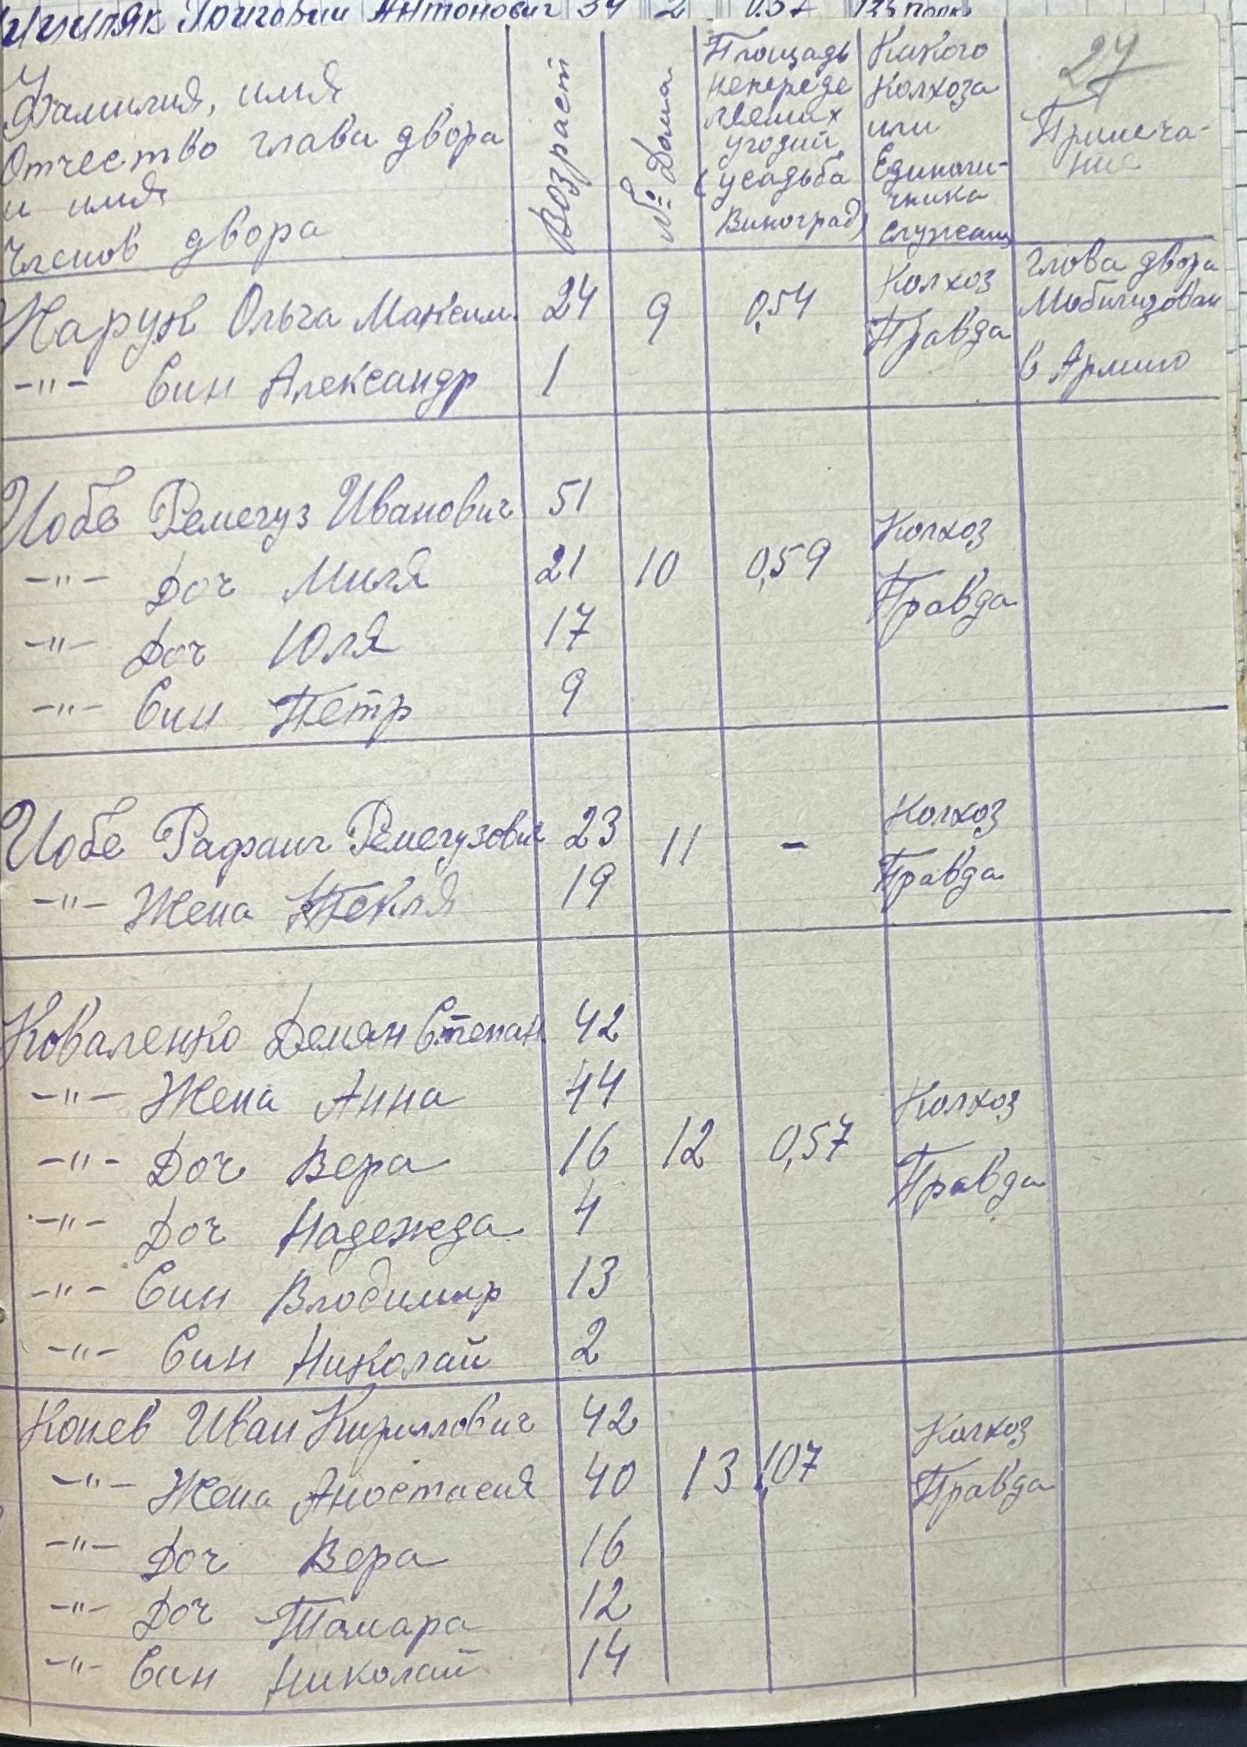 Григорий Антонович 34 2 0.57
27
Фамилия, имя
Отчество глава двора
и имя
Членов двора
Возраст
№ Дома
Площадь
непереде
ляемих
угодий
(усадьба
Виноград)
Какого
Колхоза
или
Единоли-
чника
служащ
Примеча-
ние
Нарук Ольга Максим. 24 9 0,54 Колхоз Правда
глова двора
Мобилизован
в Армию
-"- Син Александр 1
Иобе Ремегуз Иванович 51
-"- Доч Миля 21 10 0,59 Колхоз Правда
-"- Доч Юля 17
-"- Син Петр 9
Иобе Рафаил Ремегузович 23 11 - Колхоз Правда
-"- Жена Текля 19
Коваленко Демян Степан 42
-"- Жена Анна 44
-"- Доч Вера 16 12 0,57 Колхоз Правда
-"- Доч Надежда 4
-"- Син Влодимир 13
-"- Син Николай 2
Конев Иван Кириллович 42
-"- Жена Аностасия 40 13 1,07 Колхоз Правда
-"- Доч Вера 16
-"- Доч Тамара 12
-"- Син Николай 14